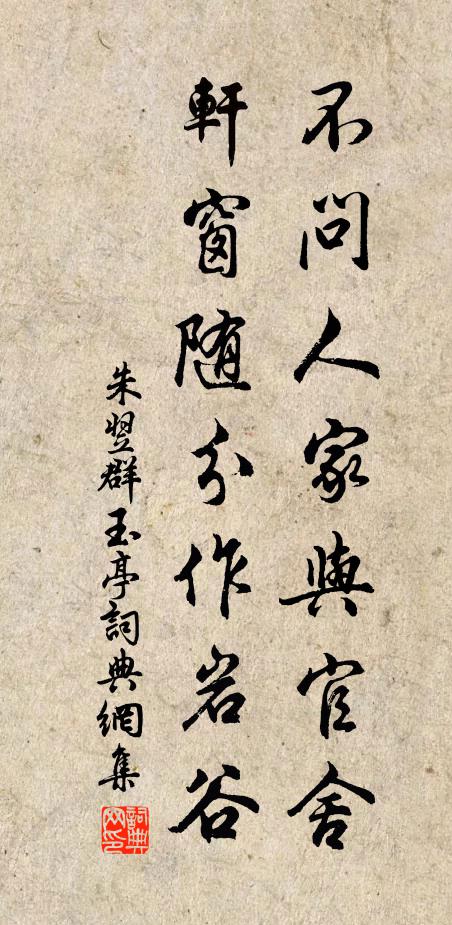 不問人家與官舍
軒窗随分作岩谷
朱翌群玉亭詞典網集
詞典網印